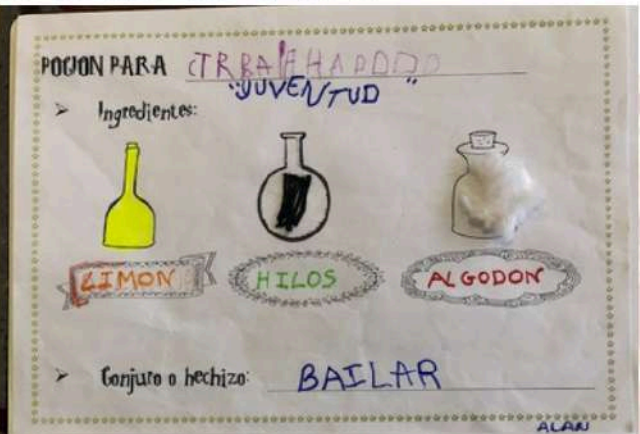 POCION PARA CTRBAHADDDD
"JUVENTUD"
➤ Ingredientes:
LIMON HILOS ALGODON
➤ Conjuro o hechizo: BAILAR
ALAN